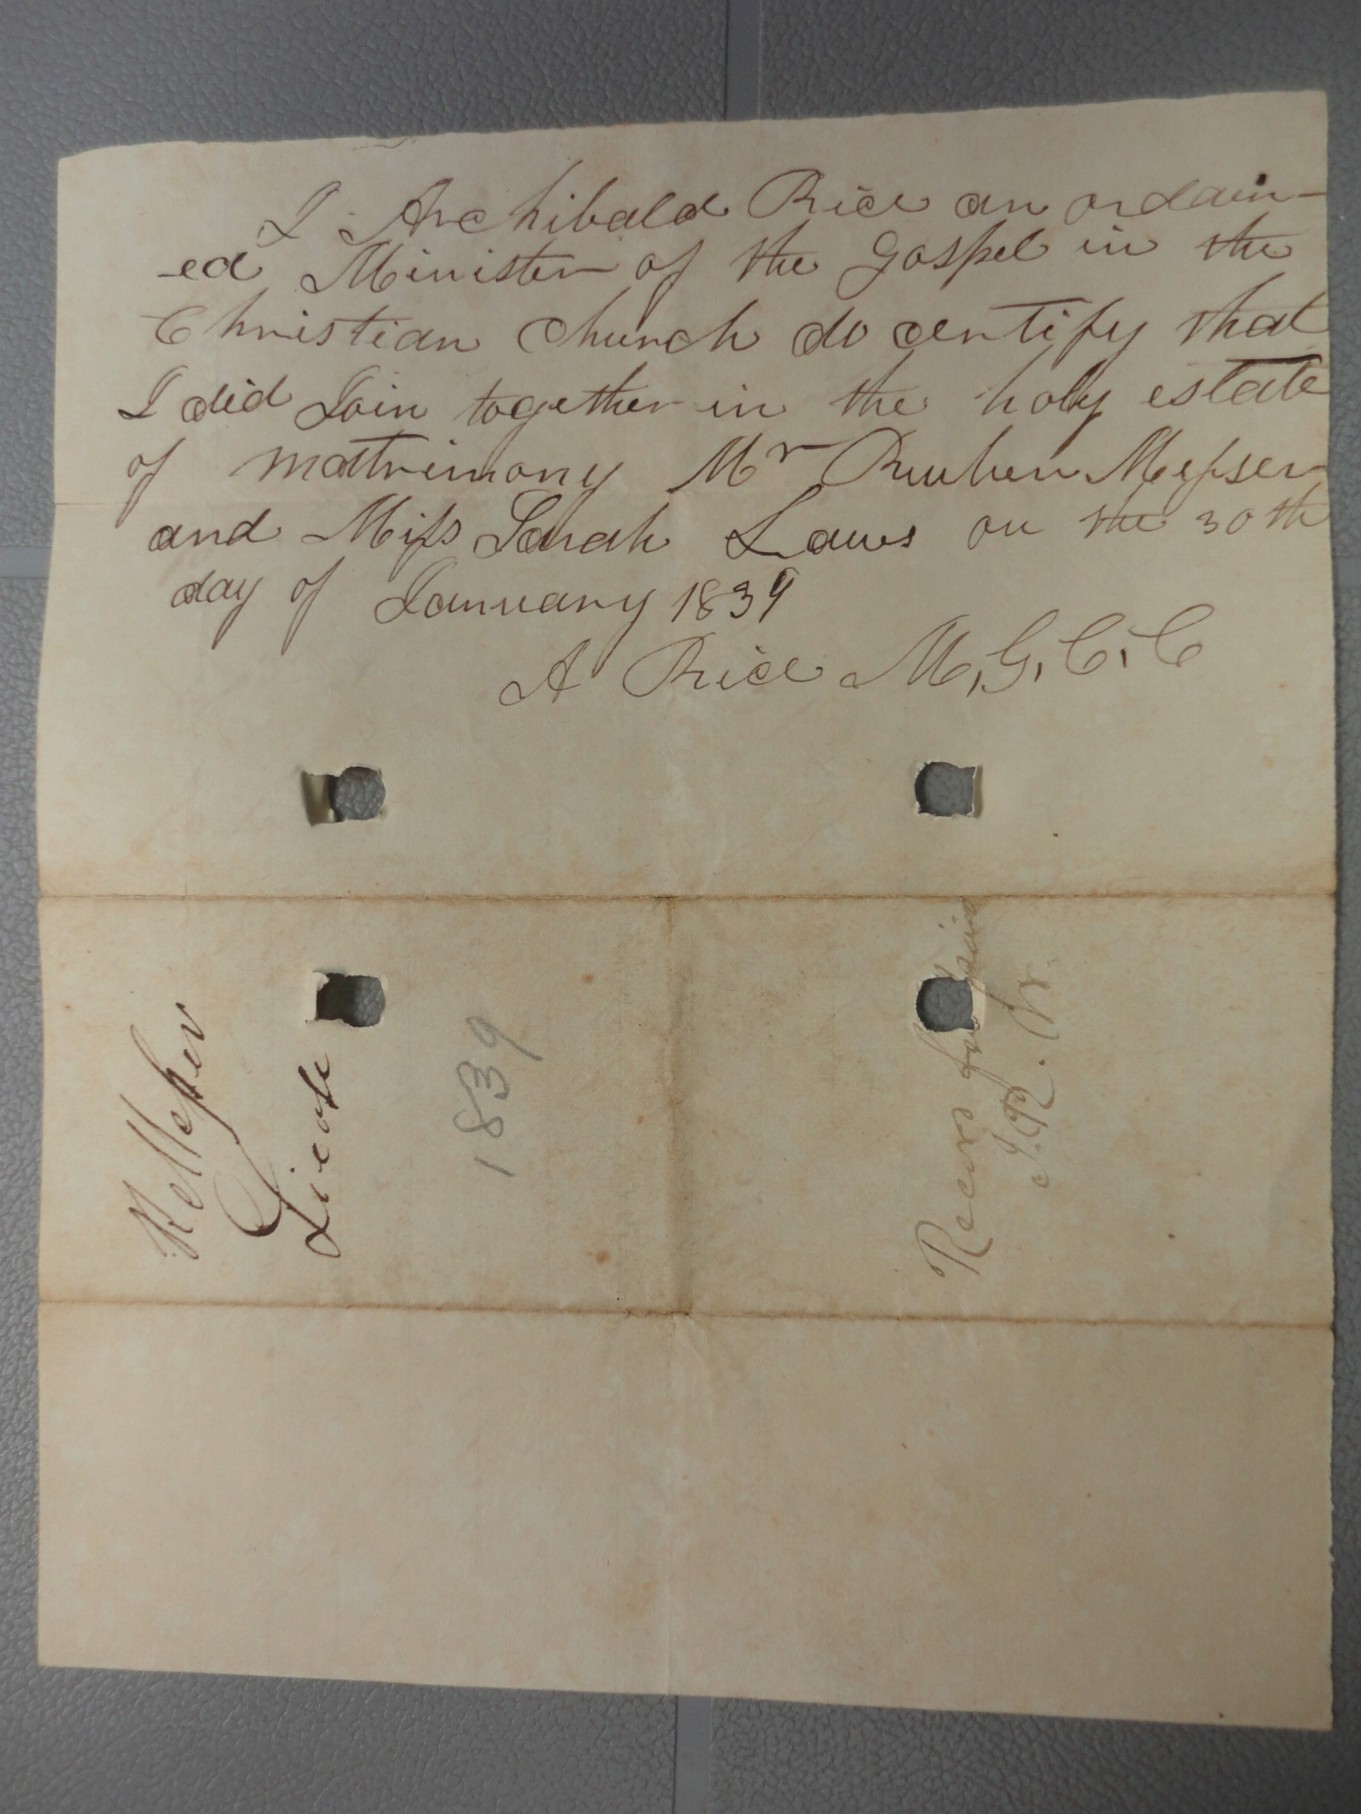 I. Archibald Rice an ordain-
-ed Minister of the Gospel in the
Christian Church do certify that
I did Join together in the holy estate
of matrimony Mr Reuben Messer
and Miss Sarah Laws on the 30th
day of January 1839
A Rice M,G,C,C
R Messer
License
1839
Recors